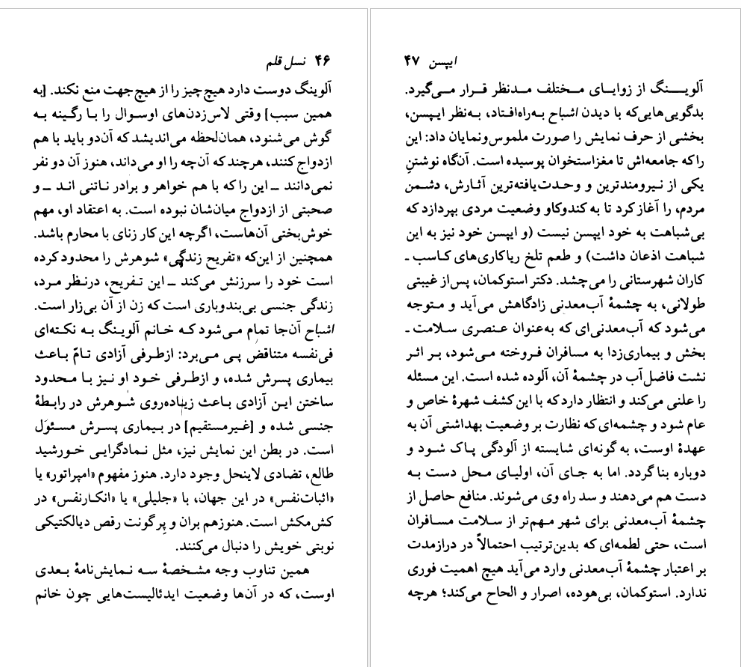 ۴۶ نسل قلم
آلوینگ دوست دارد هیچ‌چیز را از هیچ‌جهت منع نکند. [به
همین سبب] وقتی لاس‌زدن‌های اوسوال را بـا رگینه به
گوش می‌شنود، همان‌لحظه می‌اندیشد که آن‌دو باید با هم
ازدواج کنند، هرچند که آن‌چه را او می‌داند، هنوز آن دو نفر
نمی‌دانند ــ این را که با هم خواهر و برادر ناتنی انـد ــ و
صحبتی از ازدواج میان‌شان نبوده است. به اعتقاد او، مهم
خوش‌بختی آن‌هاست، اگرچه این کار زنای با محارم باشد.
همچنین از این‌که «تفریح زندگی» شوهرش را محدود کرده
است خود را سرزنش می‌کند ــ این تـفریح، درنظر مـرد،
زندگی جنسی بی‌بندوباری است که زن از آن بی‌زار است.
اشباح آن‌جا تمام مـی‌شود کـه خـانم آلویـنگ بـه نکته‌ای
فی‌نفسه متناقض پـی مـی‌برد: ازطرفی آزادی تـامّ بـاعث
بیماری پسرش شده، و ازطرفی خـود او نـیز بـا مـحدود
ساختن ایـن آزادی باعث زیاده‌روی شوهرش در رابطهٔ
جنسی شده و [غیرمستقیم] در بـیماری پسـرش مسـئول
است. در بطن این نمایش نیز، مثل نمادگرایی خـورشید
طالع، تضادی لاینحل وجود دارد. هنوز مفهوم «امپراتور» یا
«اثبات‌نفس» در این جهان، با «جلیلی» یا «انکـارنفس» در
کش‌مکش است. هنوزهم بران و پرگونت رقص دیالکتیکی
نوبتی خویش را دنبال می‌کنند.
همین تناوب وجه مـشخصهٔ سـه نـمایش‌نامهٔ بـعدی
اوست، که در آن‌ها وضعیت ایدئالیست‌هایی چون خانم
ایبسن ۴۷
آلویـــنگ از زوایـای مـختلف مـدنظر قـرار مـی‌گیرد.
بدگویی‌هایی‌که با دیدن اشباح به‌راه‌افتاد، به‌نظر ایبسن،
بخشی از حرف نمایش را صورت ملموس‌ونمایان داد: این
را که جامعه‌اش تا مغزاستخوان پوسیده است. آن‌گاه نوشتنِ
یکی از نـیرومندترین و وحـدت‌یافته‌ترین آثـارش، دشـمن
مردم، را آغاز کرد تا به کندوکاو وضعیت مردی بپردازد که
بی‌شباهت به خود ایبسن نیست (و ایبسن خود نیز به این
شباهت اذعان داشت) و طعم تلخ ریاکاری‌های کـاسب ـ
کاران شهرستانی را می‌چشد. دکتر استوکمان، پس‌از غیبتی
طولانی، به چشمهٔ آب‌معدنی زادگاهش می‌آید و مـتوجه
می‌شود که آب‌معدنی‌ای که به‌عنوان عنصری سلامت ـ
بخش و بیماری‌زدا به مسافران فـروخته مـی‌شود، بـر اثـر
نشت فاضل‌آب در چشمهٔ آن، آلوده شده است. این مسئله
را علنی می‌کند و انتظار دارد که با این کشف شهرهٔ خاص و
عام شود و چشمه‌ای که نظارت بر وضعیت بهداشتی آن به
عهدهٔ اوست، به گونه‌ای شایسته از آلودگی پـاک شـود و
دوباره بنا گردد. اما به جـای آن، اولیـای مـحل دست بـه
دست هم می‌دهند و سد راه وی می‌شوند. منافع حاصل از
چشمهٔ آب‌معدنی برای شهر مـهم‌تر از سـلامت مسـافران
است، حتی لطمه‌ای که بدین‌ترتیب احتمالاً در درازمدت
بر اعتبار چشمهٔ آب‌معدنی وارد می‌آید هیچ اهمیت فوری
ندارد. استوکمان، بی‌هوده، اصرار و الحاح می‌کند؛ هرچه